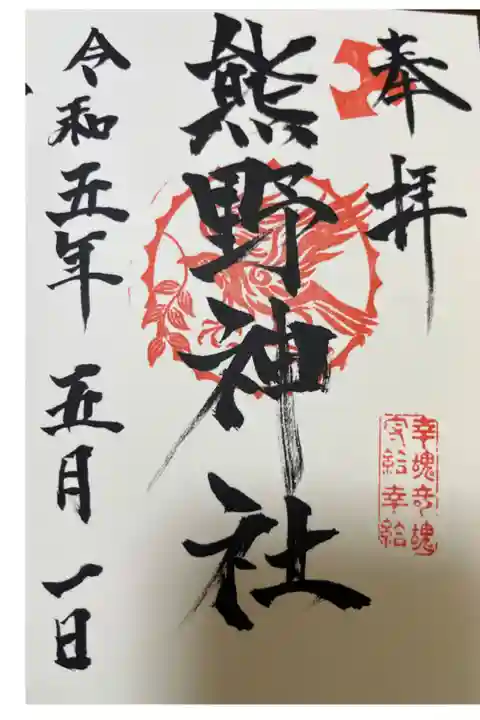 奉拝
幸魂奇魂
守給幸給
熊野神社
令和五年 五月 一日